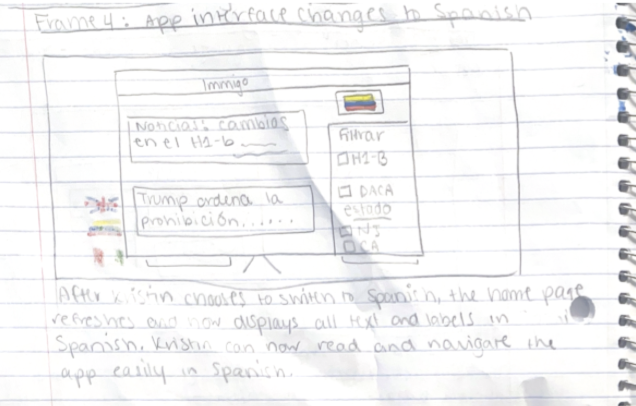 Frame 4: App interface changes to Spanish
Immigo
Noticias: cambios
en el H1-b
Trump ordena la
prohibición......
Filtrar
H1-B
DACA
estado
NJ
CA
After Kristin chooses to switch to Spanish, the home page
refreshes and now displays all text and labels in
Spanish. Kristin can now read and navigate the
app easily in Spanish.